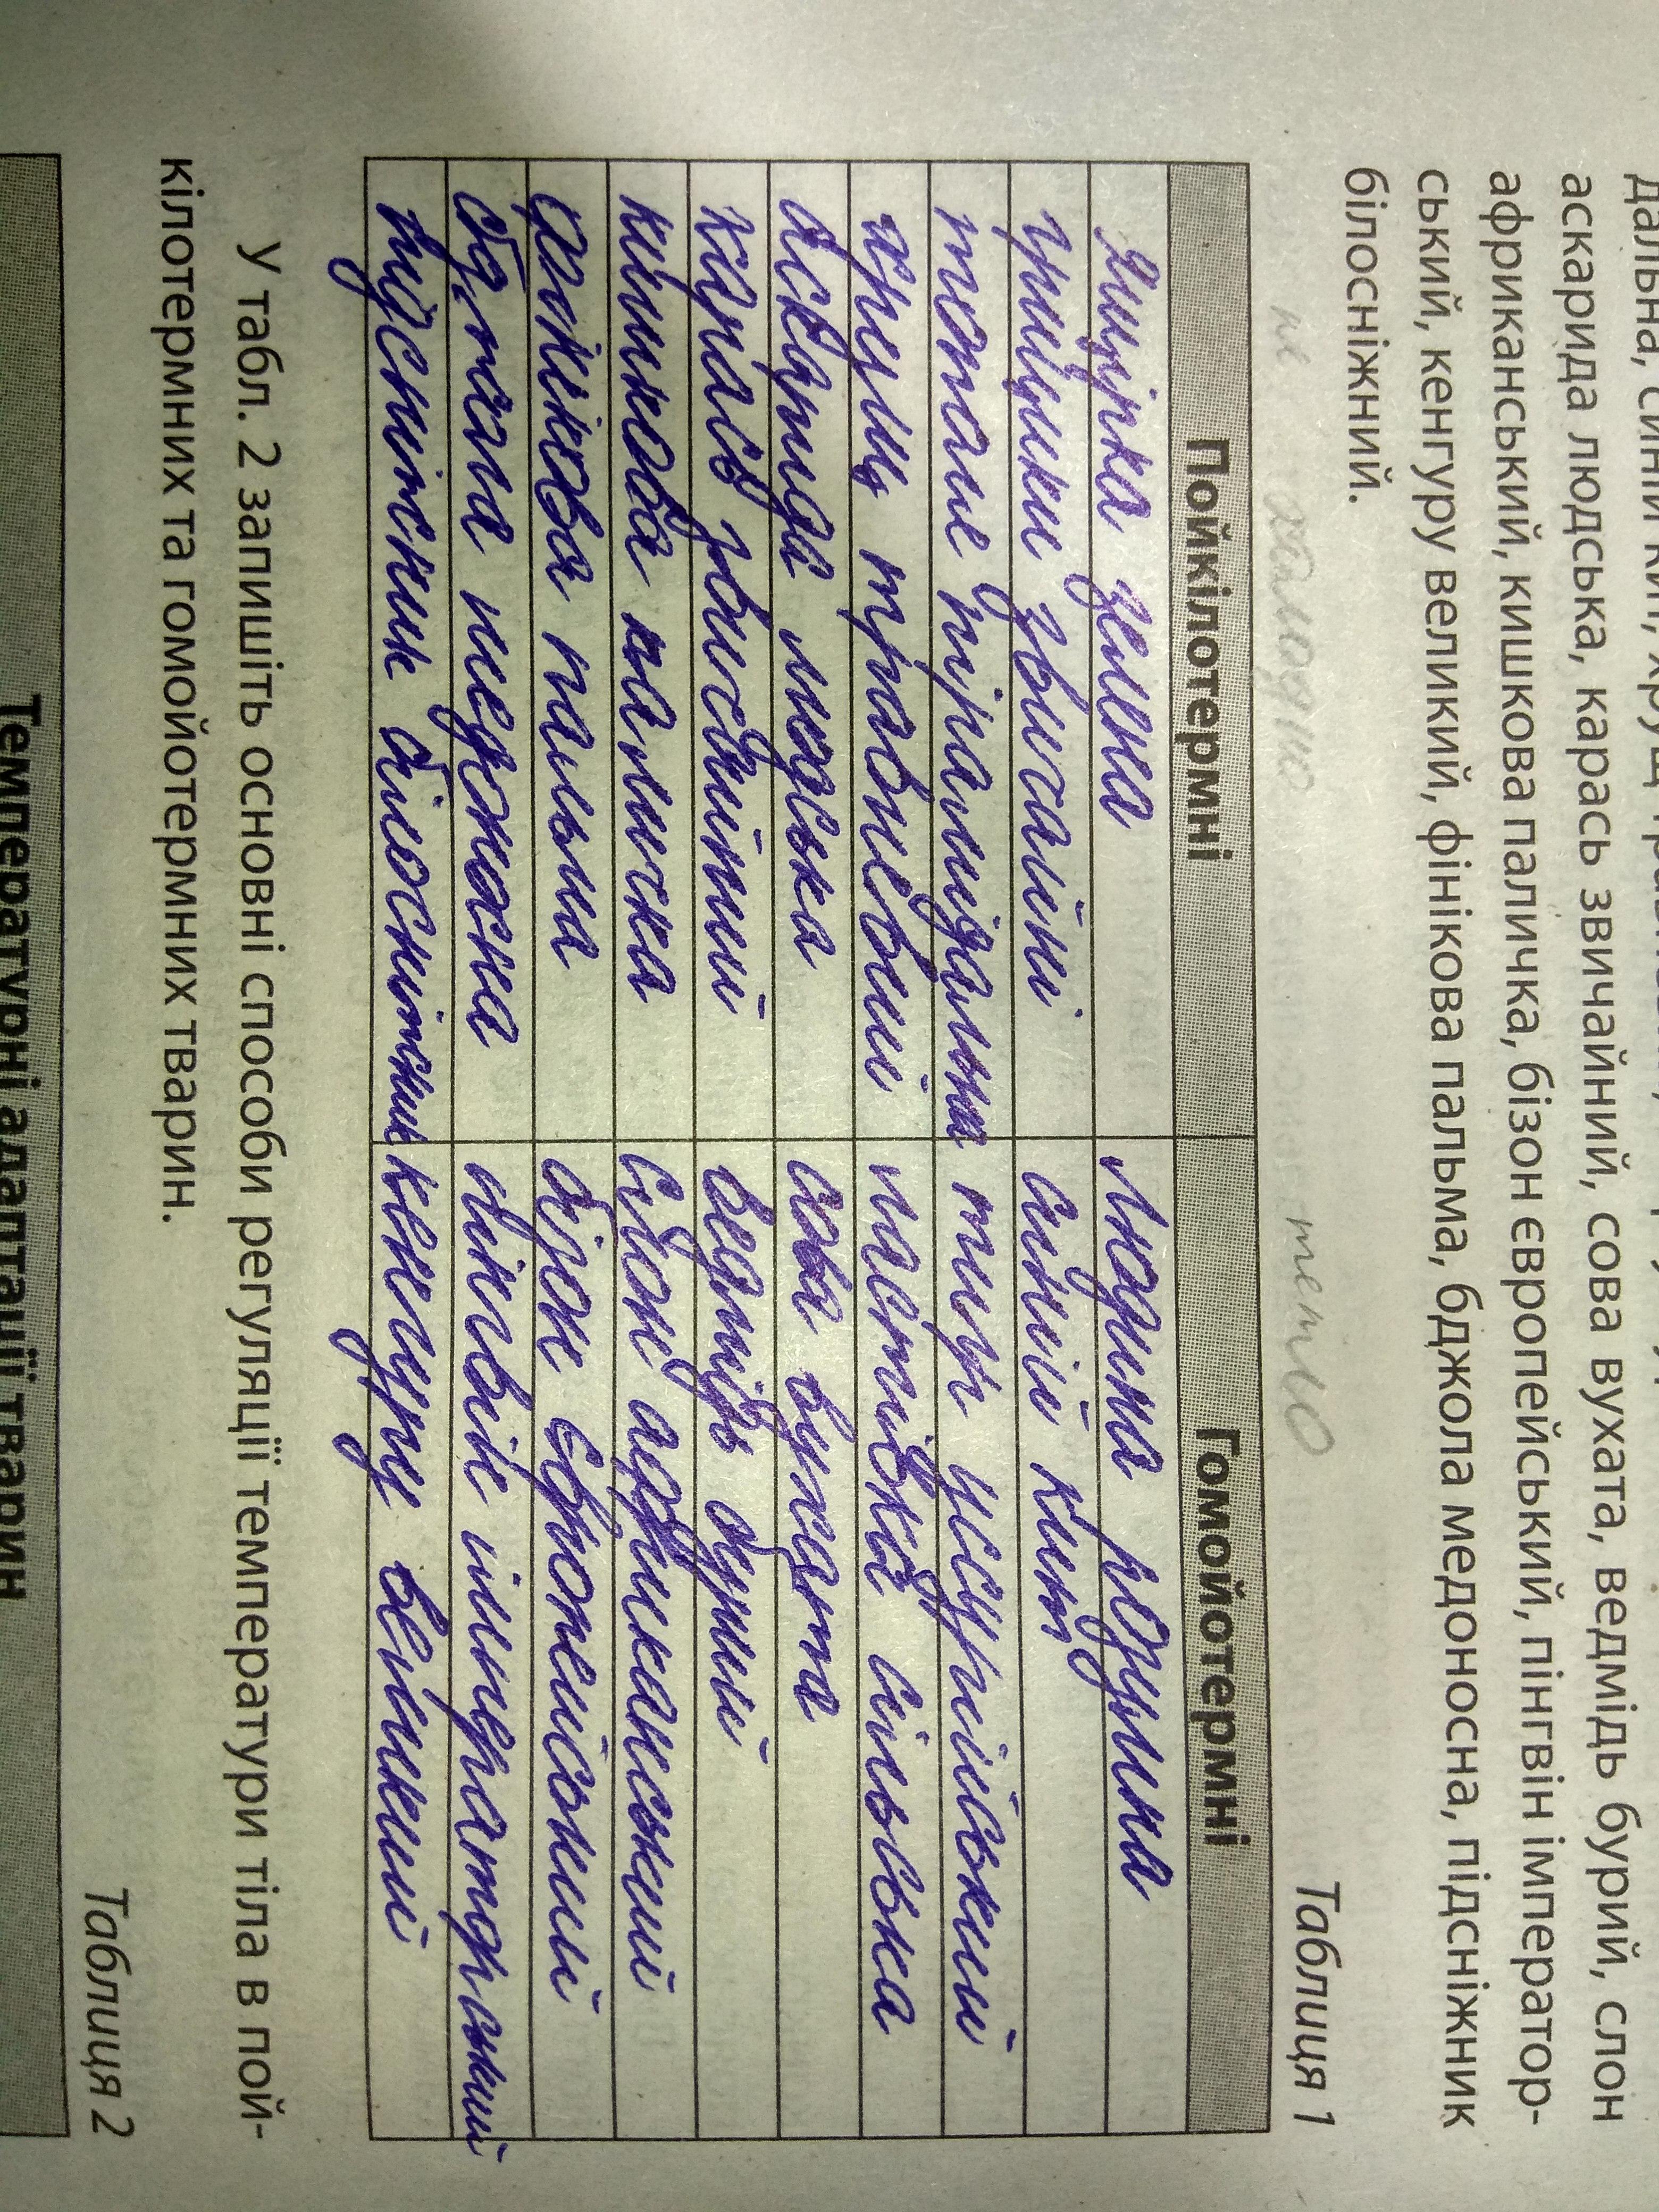 дальна, синій кит, хрущ
аскарида людська, карась звичайний, сова вухата, ведмідь бурий, слон
африканський, кишкова паличка, бізон європейський, пінгвін імператор-
ський, кенгуру великий, фінікова пальма, бджола медоносна, підсніжник
білосніжний.
не холодно тепло
Таблиця 1
Пойкілотермні Гомойотермні
Ящірка зелена Людина розумна
трицики звичайні синій кит
тополе пірамідальна тигр уссурійський
хрущ травневий ластівка сільська
аскарида людська сова вухата
карась звичайний ведмідь бурий
кишкова паличка слон африканський
фінікова пальма бізон європейський
бджола медоносна пінгвін імператорський
підсніжник білосніжник кенгуру великий
У табл. 2 запишіть основні способи регуляції температури тіла в пой-
кілотермних та гомойотермних тварин.
Таблиця 2
Температурні адаптації тварин